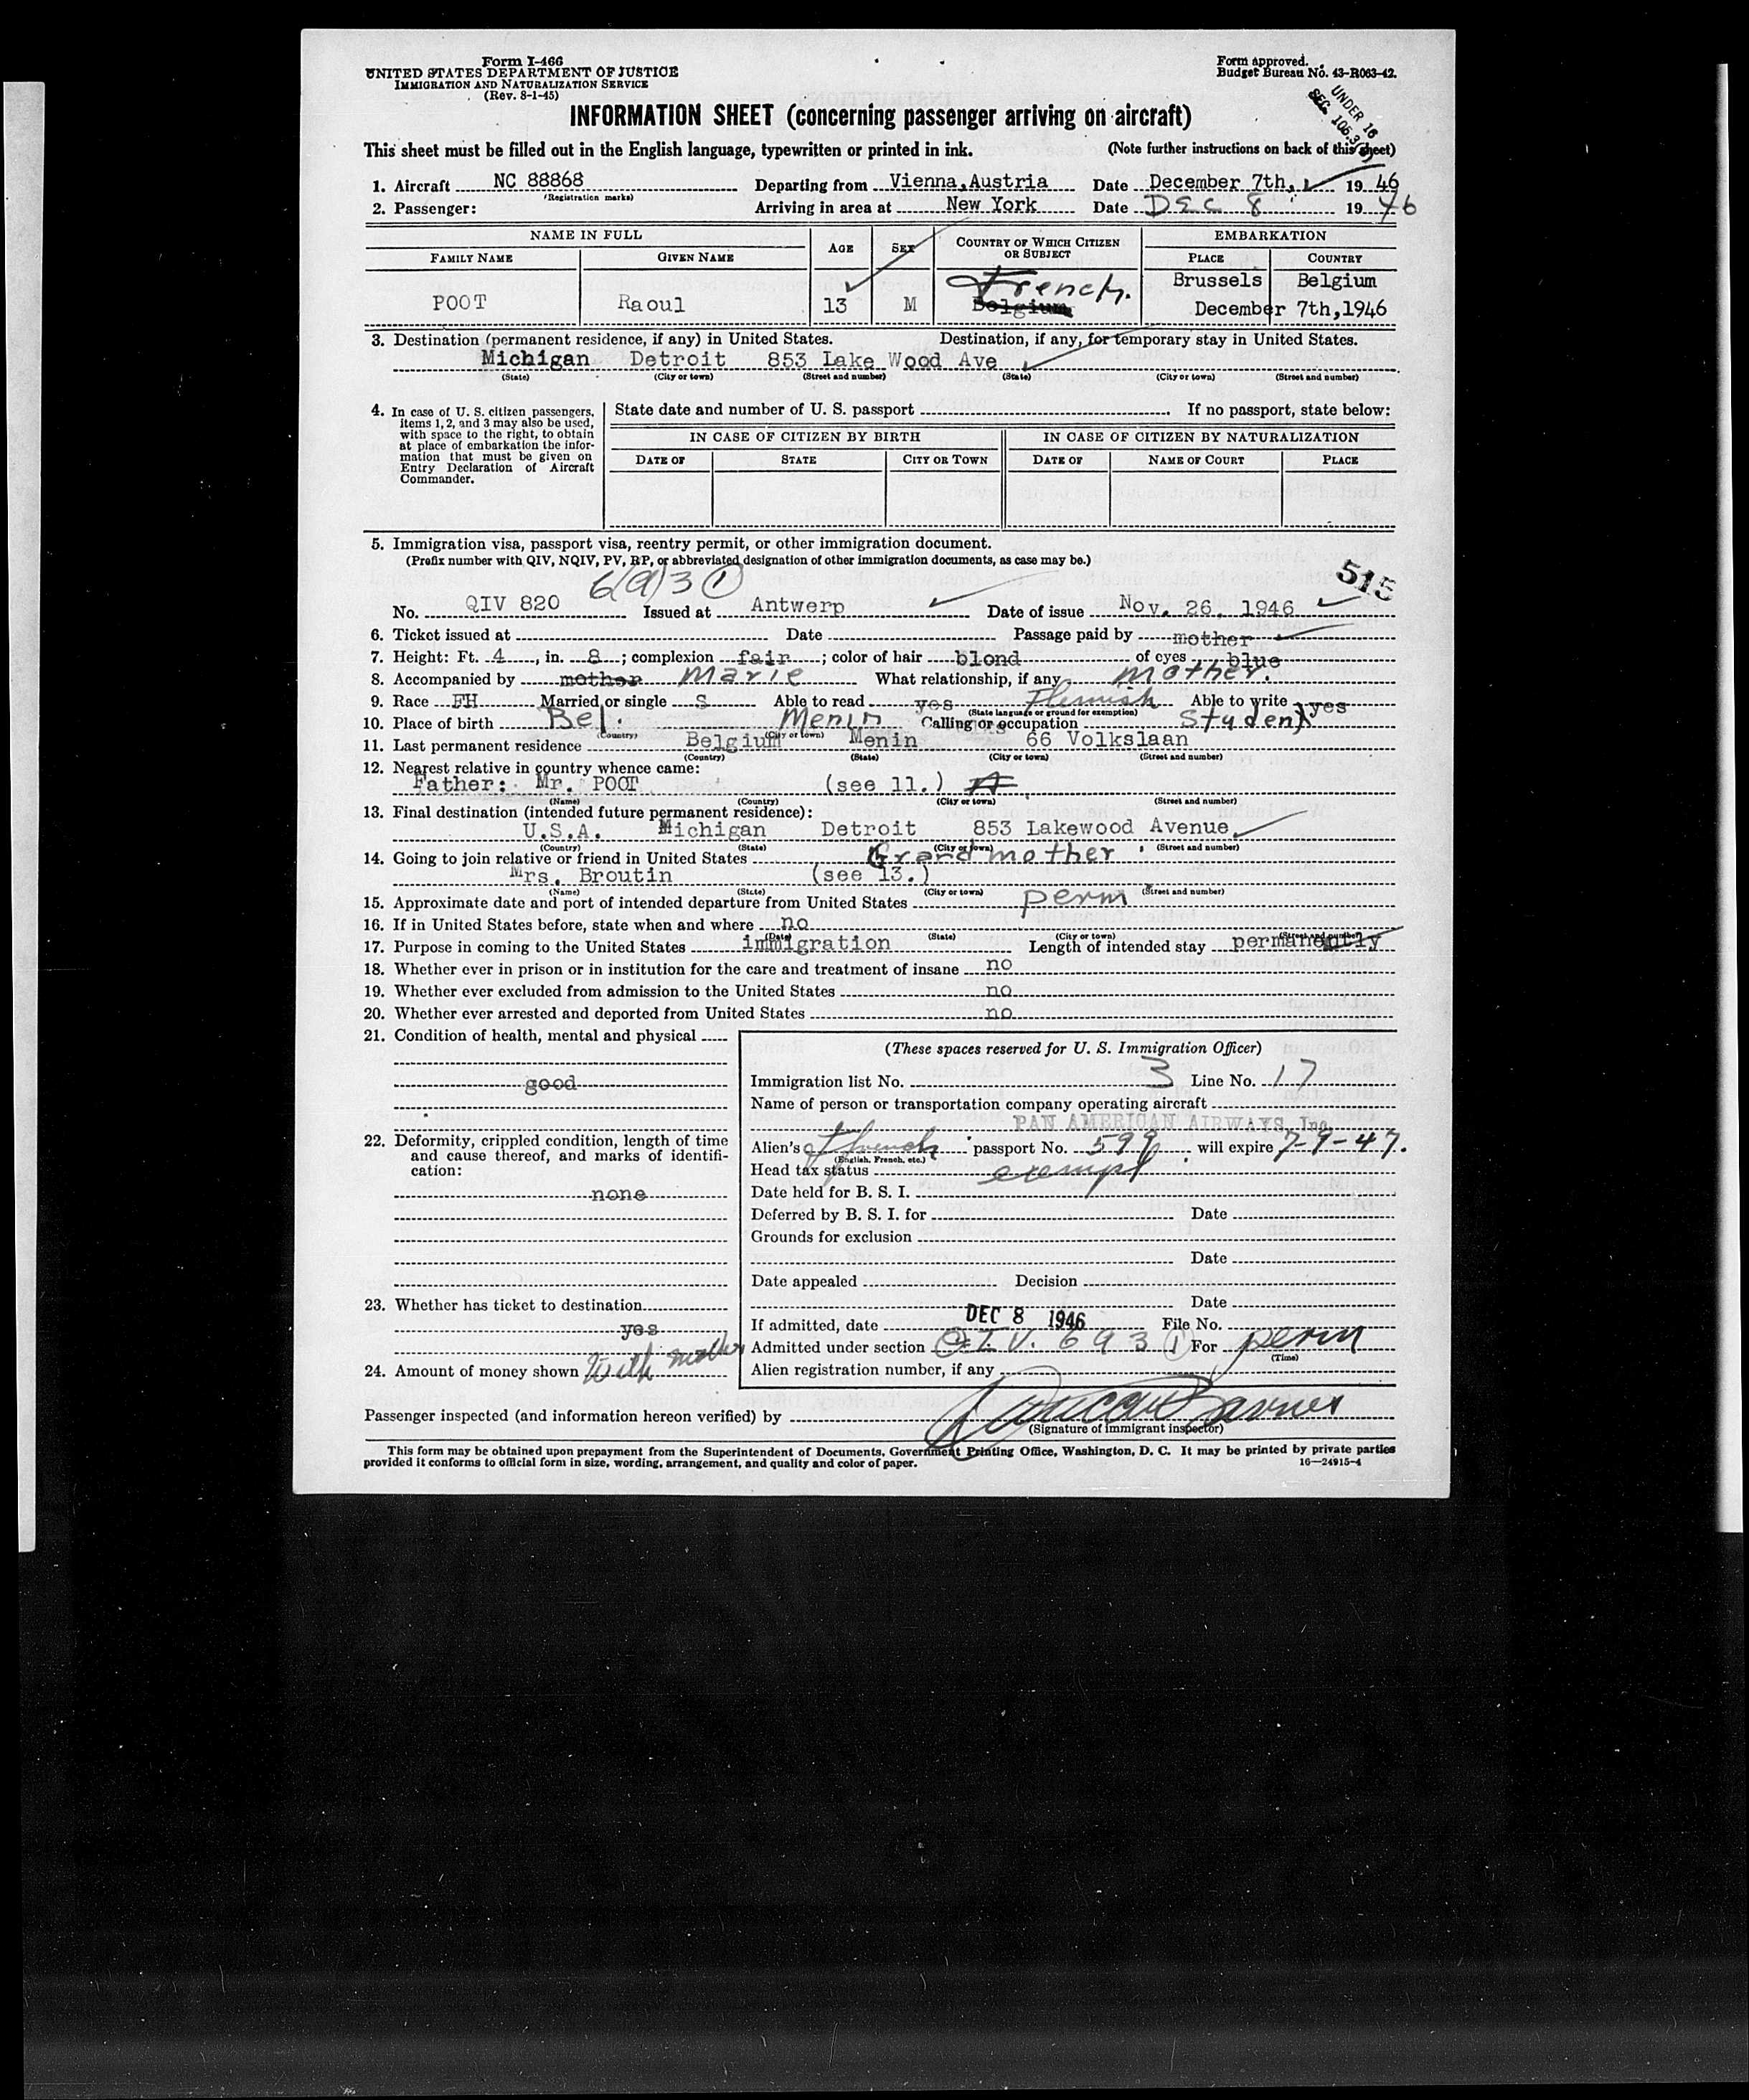 Form I-466
UNITED STATES DEPARTMENT OF JUSTICE
IMMIGRATION AND NATURALIZATION SERVICE
(Rev. 8-1-45)
Form approved.
Budget Bureau No. 43-R063-42.
UNDER 16
SEC. 105.3
INFORMATION SHEET (concerning passenger arriving on aircraft)
This sheet must be filled out in the English language, typewritten or printed in ink. (Note further instructions on back of this sheet)
1. Aircraft NC 88868 Departing from Vienna, Austria Date December 7th, 1946
(Registration marks)
2. Passenger: Arriving in area at New York Date DEC 8 1946
NAME IN FULL AGE SEX COUNTRY OF WHICH CITIZEN OR SUBJECT EMBARKATION
FAMILY NAME GIVEN NAME PLACE COUNTRY
French. Brussels Belgium
POOT Raoul 13 M Belgium December 7th,1946
3. Destination (permanent residence, if any) in United States. Destination, if any, for temporary stay in United States.
Michigan Detroit 853 Lake Wood Ave
(State) (City or town) (Street and number) (State) (City or town) (Street and number)
4. In case of U. S. citizen passengers, items 1, 2, and 3 may also be used, with space to the right, to obtain at place of embarkation the information that must be given on Entry Declaration of Aircraft Commander.
State date and number of U. S. passport If no passport, state below:
IN CASE OF CITIZEN BY BIRTH IN CASE OF CITIZEN BY NATURALIZATION
DATE OF STATE CITY OR TOWN DATE OF NAME OF COURT PLACE
5. Immigration visa, passport visa, reentry permit, or other immigration document.
(Prefix number with QIV, NQIV, PV, RP, or abbreviated designation of other immigration documents, as case may be.)
6(a)3 (1) 515
No. QIV 820 Issued at Antwerp Date of issue Nov. 26, 1946
6. Ticket issued at Date Passage paid by mother
7. Height: Ft. 4, in. 8; complexion fair; color of hair blond of eyes blue
8. Accompanied by mother Marie What relationship, if any mother.
9. Race FH Married or single S Able to read yes Flemish Able to write yes
(State language or ground for exemption)
10. Place of birth Bel. Menin Calling or occupation Student
(Country) (City or town)
11. Last permanent residence Belgium Menin 66 Volkslaan
(Country) (State) (City or town) (Street and number)
12. Nearest relative in country whence came:
Father: Mr. POOT (see 11.)
(Name) (Country) (City or town) (Street and number)
13. Final destination (intended future permanent residence):
U.S.A. Michigan Detroit 853 Lakewood Avenue
(Country) (State) (City or town) (Street and number)
14. Going to join relative or friend in United States Grandmother
Mrs. Broutin (see 13.)
(Name) (State) (City or town) (Street and number)
15. Approximate date and port of intended departure from United States perm
16. If in United States before, state when and where no
(Date) (State) (City or town) (Street and number)
17. Purpose in coming to the United States immigration Length of intended stay permanently
18. Whether ever in prison or in institution for the care and treatment of insane no
19. Whether ever excluded from admission to the United States no
20. Whether ever arrested and deported from United States no
21. Condition of health, mental and physical
good
22. Deformity, crippled condition, length of time and cause thereof, and marks of identification:
none
23. Whether has ticket to destination
yes
24. Amount of money shown With mother
(These spaces reserved for U. S. Immigration Officer)
Immigration list No. 3 Line No. 17
Name of person or transportation company operating aircraft
PAN AMERICAN AIRWAYS, Inc.
Alien's French passport No. 599 will expire 7-9-47.
(English, French, etc.)
Head tax status exempt
Date held for B. S. I.
Deferred by B. S. I. for Date
Grounds for exclusion
Date
Date appealed Decision
Date
If admitted, date DEC 8 1946 File No.
Admitted under section Q.I.V. 6 9 3 (1) For perm
(Time)
Alien registration number, if any
Passenger inspected (and information hereon verified) by
(Signature of immigrant inspector)
This form may be obtained upon prepayment from the Superintendent of Documents, Government Printing Office, Washington, D. C. It may be printed by private parties
provided it conforms to official form in size, wording, arrangement, and quality and color of paper. 16—24915-4